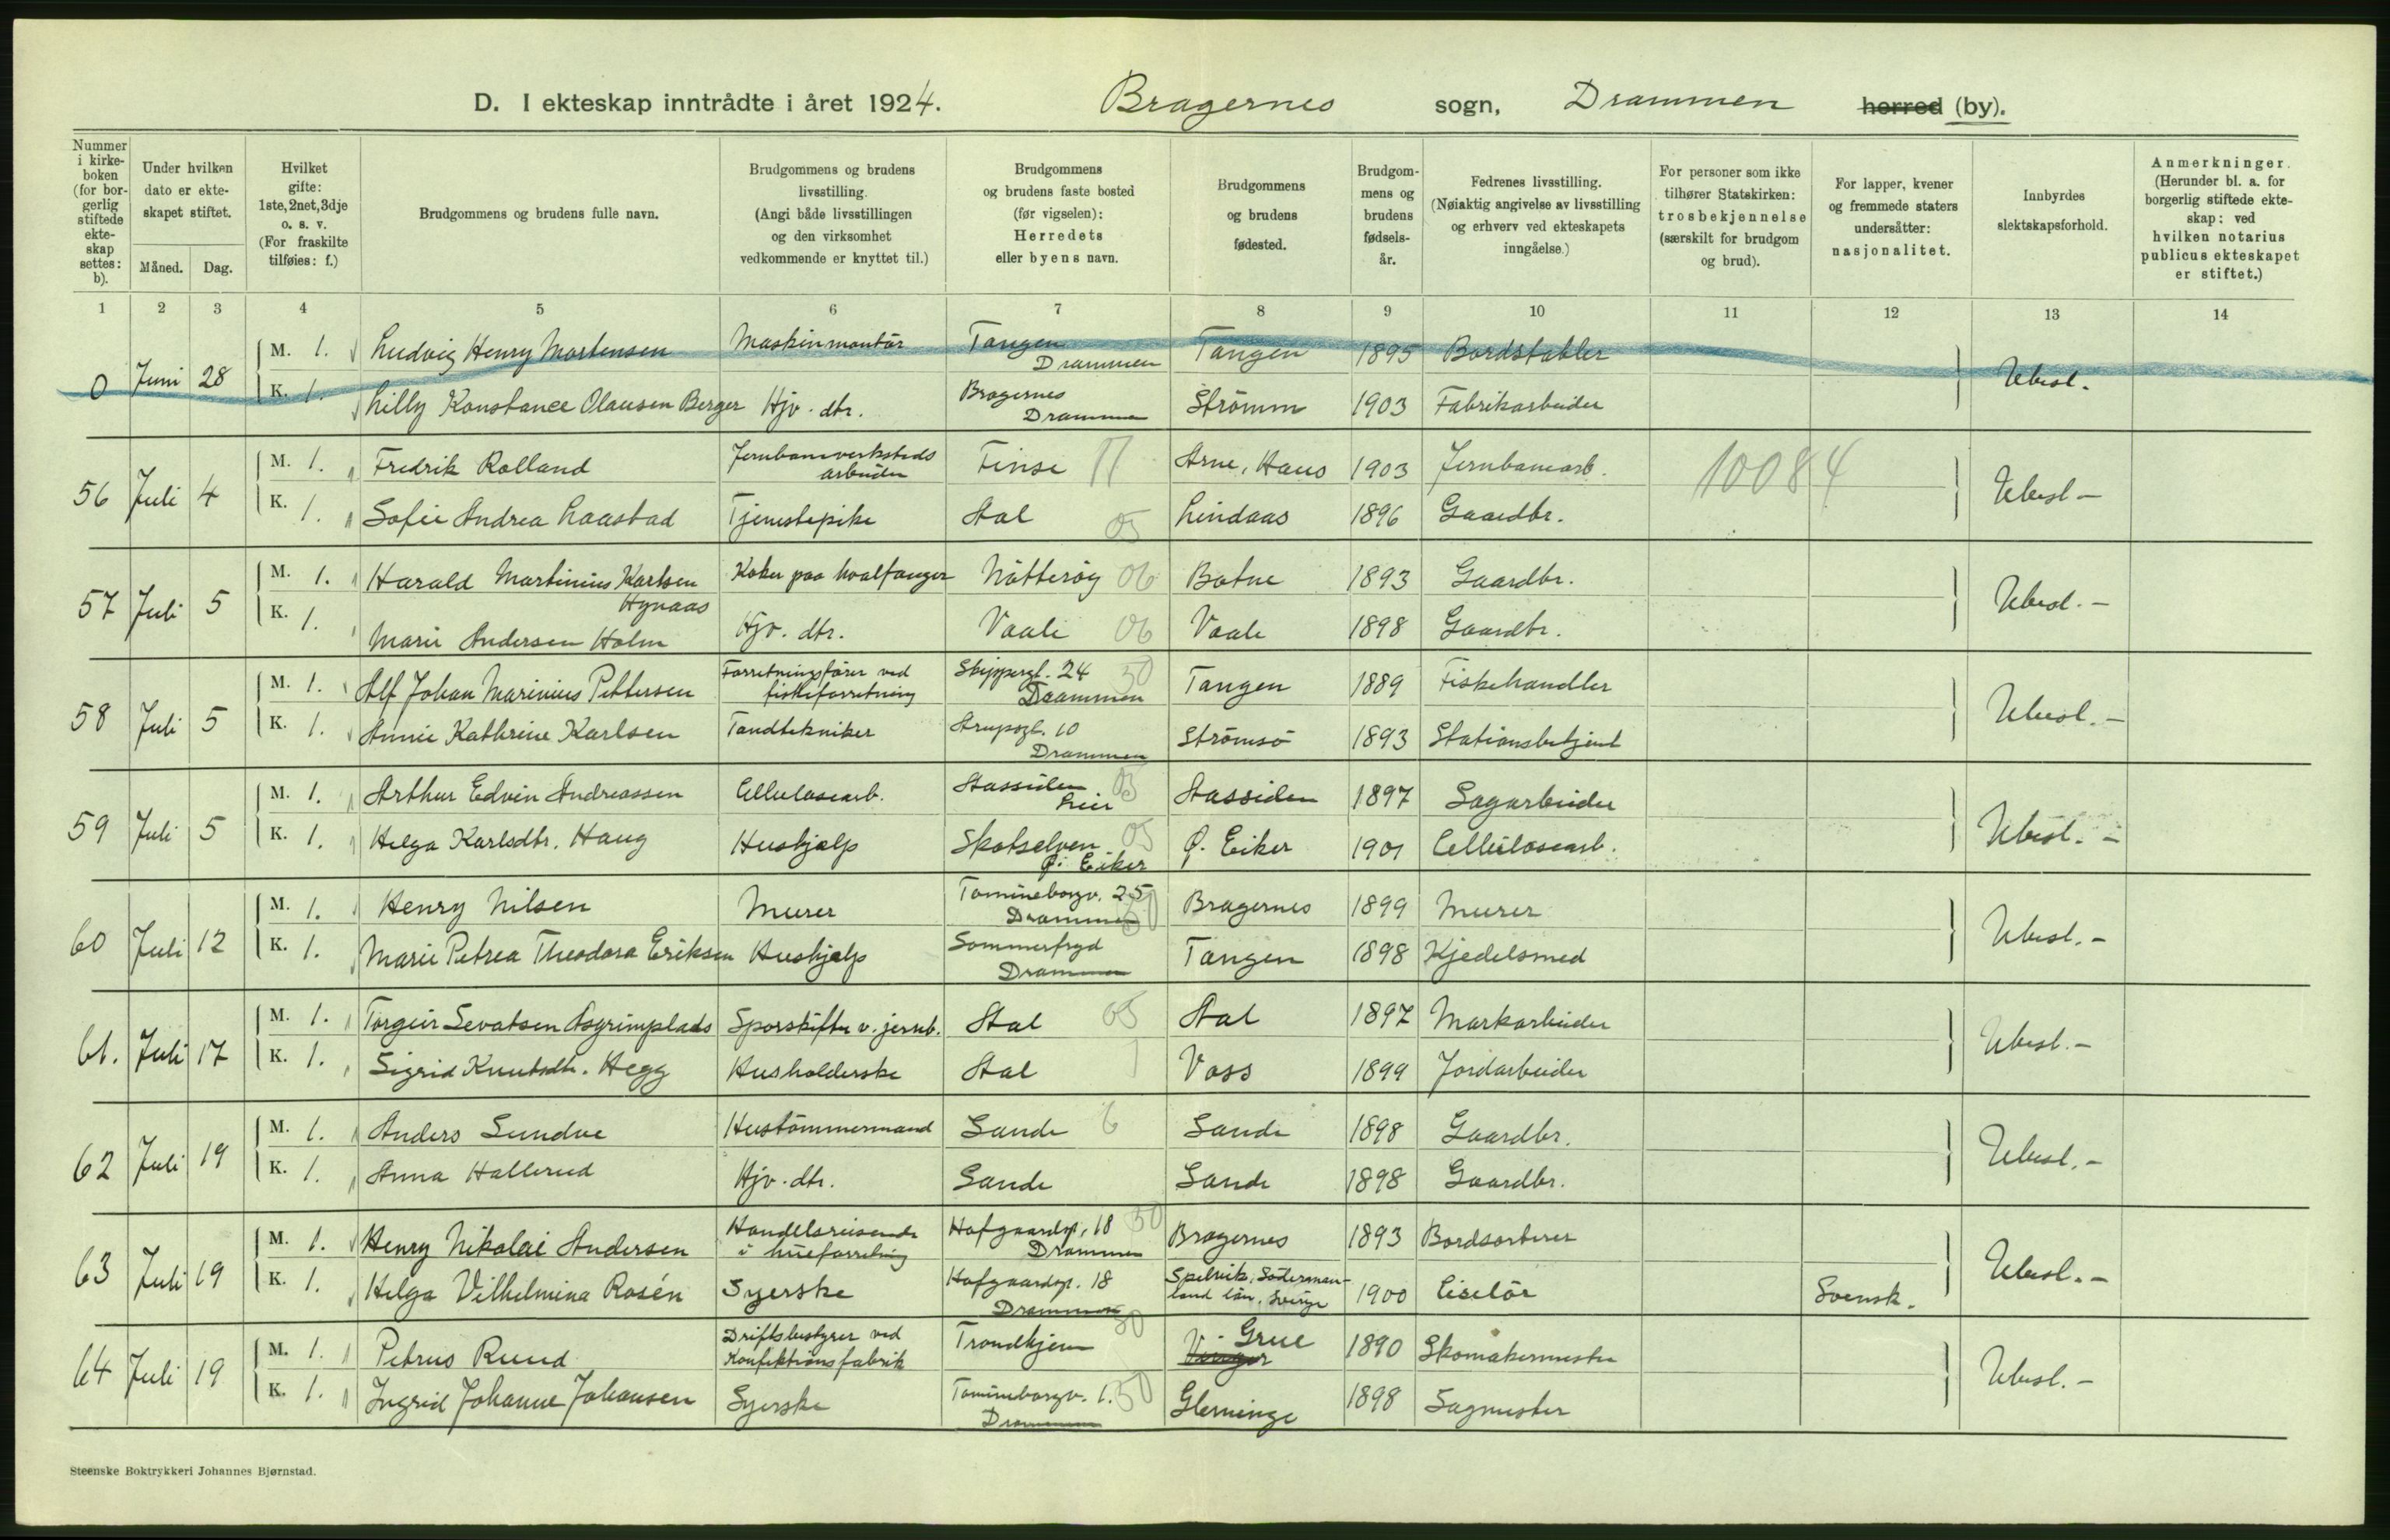 D. I ekteskap inntrådte i året 1924. Bragernes sogn, Drammen herred (by).
Nummer i kirke-boken (for bor-gerlig stiftede ekte-skap settes: b).
Under hvilken dato er ekte-skapet stiftet.
Måned. Dag.
Hvilket gifte: 1ste, 2net, 3dje o. s. v. (For fraskilte tilføies: f.)
Brudgommens og brudens fulle navn.
Brudgommens og brudens livsstilling. (Angi både livsstillingen og den virksomhet vedkommende er knyttet til.)
Brudgommens og brudens faste bosted (før vigselen): Herredets eller byens navn.
Brudgommens og brudens fødested.
Brudgom-mens og brudens fødsels-år.
Fedrenes livsstilling. (Nøiaktig angivelse av livsstilling og erhverv ved ekteskapets inngåelse.)
For personer som ikke tilhører Statskirken: trosbekjennelse (særskilt for brudgom og brud).
For lapper, kvener og fremmede staters undersåtter: nasjonalitet.
Innbyrdes slektskapsforhold.
Anmerkninger. (Herunder bl. a. for borgerlig stiftede ekte-skap: ved hvilken notarius publicus ekteskapet er stiftet.)
1 2 3 4 5 6 7 8 9 10 11 12 13 14
0 Juni 28 M. 1. Ludvig Henry Martensen Maskinmontör Tangen Drammen Tangen 1895 Bordstabler Ubesl.
K. 1. Lilly Konstance Olausen Berger Hjv. dtr. Bragernes Drammen Strömm 1903 Fabrikarbeider
56 Juli 4 M. 1. Fredrik Rolland Jernbaneverksteds arbeider Finse 11 Arne, Haus 1903 Jernbanearb. 10084 Ubesl -
K. 1. Sofie Andrea Laastad Tjenestepike Aal 05 Lindaas 1896 Gaardbr.
57 Juli 5 M. 1. Harald Martinius Karlsen Hynaas Koker paa hvalfanger Nötteröy 06 Botne 1893 Gaardbr. Ubesl. -
K. 1. Marie Andersen Holm Hjv. dtr. Vaale 06 Vaale 1898 Gaardbr.
58 Juli 5 M. 1. Alf Johan Marinius Pettersen Forretningsförer ved fiskeforretning Skippergt. 24 Drammen 30 Tangen 1889 Fiskehandler Ubesl. -
K. 1. Annie Kathrine Karlsen Tandtekniker Arupsgt. 10 Drammen Strömsö 1893 Stationsbetjent
59 Juli 5 M. 1. Arthur Edvin Andreassen Cellulosearb. Aassiden Lier 05 Aassiden 1897 Sagarbeider Ubesl. -
K. 1. Helga Karlsdtr. Haug Hushjælp Skotselven Ø. Eiker 05 Ø. Eiker 1901 Cellulosearb.
60 Juli 12 M. 1. Henry Nilsen Murer Tomineborgv. 25 Drammen 30 Bragernes 1899 Murer Ubesl. -
K. 1. Marie Petrea Theodora Eriksen Hushjælp Sommerfryd Drammen Tangen 1898 Kjedelsmed
61. Juli 17 M. 1. Torgeir Sevatsen Asgrimplads Sporskifter v. jernb. Aal 05 Aal 1897 Markarbeider Ubesl. -
K. 1. Sigrid Knutsdtr. Hegg Husholderske Aal Voss 1899 Jordarbeider
62 Juli 19 M. 1. Anders Sundve Hustömmermand Sande 6 Sande 1898 Gaardbr. Ubesl. -
K. 1. Anna Hallerud Hjv. dtr. Sande Sande 1898 Gaardbr.
63 Juli 19 M. 1. Henry Nikolai Andersen Handelsreisende i hueforretning Hofgaardsgt. 18 Drammen 30 Bragernes 1893 Bordsorterer Ubesl. -
K. 1. Helga Vilhelmina Rosén Syerske Hofgaardsgt. 18 Drammen Spelvik, Söderman-land län, Sverige 1900 Ciselör Svensk.
64 Juli 19 M. 1. Petrus Ruud Driftsbestyrer ved Konfektionsfabrik Trondhjem 30 Vinger Grue 1890 Skomakermester Ubesl. -
K. 1. Ingrid Johanne Johansen Syerske Tomineborgv. 1. Drammen 30 Glemminge 1898 Sagmester
Steenske Boktrykkeri Johannes Bjørnstad.